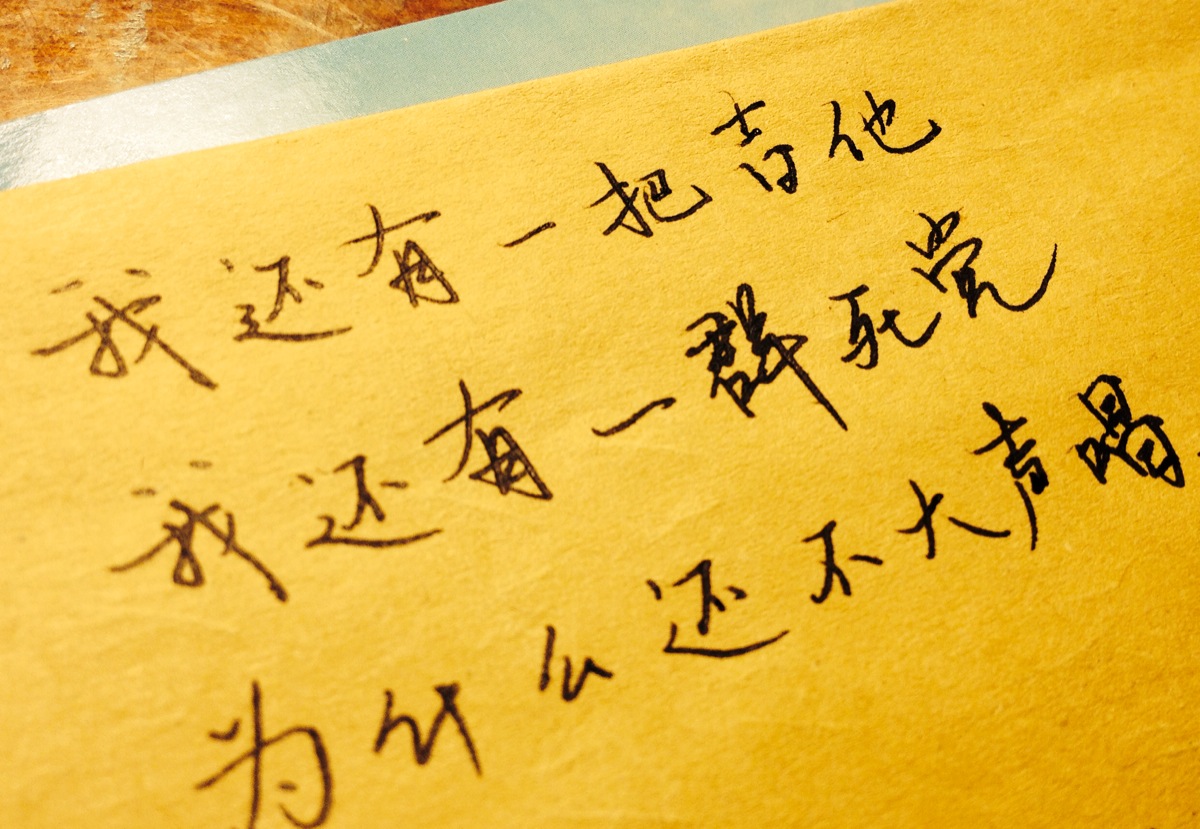 我还有一把吉他
我还有一群死党
为什么还不大声唱